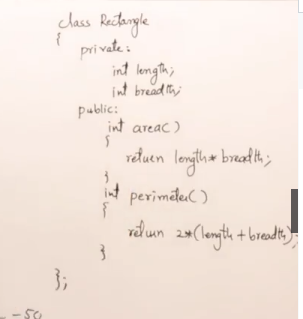 class Rectangle
{
private:
int length;
int breadth;
public:
int area()
{
return length* breadth;
}
int perimeter()
{
return 2*(length + breadth);
}
};